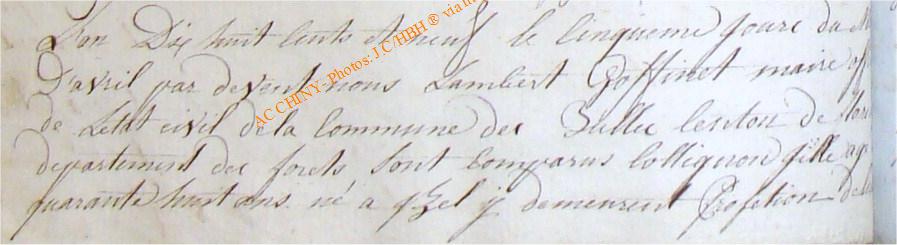 L'an Dix huit Cents et neuf le Cinqueme Jours du M
D'avril par devent nous Lambert Goffinet maire of
de Letat civil de la Commune der Tullee Centon de
departement des forets Sont Comparus Collignon fille ag
quarante huit ans né a y demeurent Profetion de
ACCHINY - Photos: J C/HBH ® via